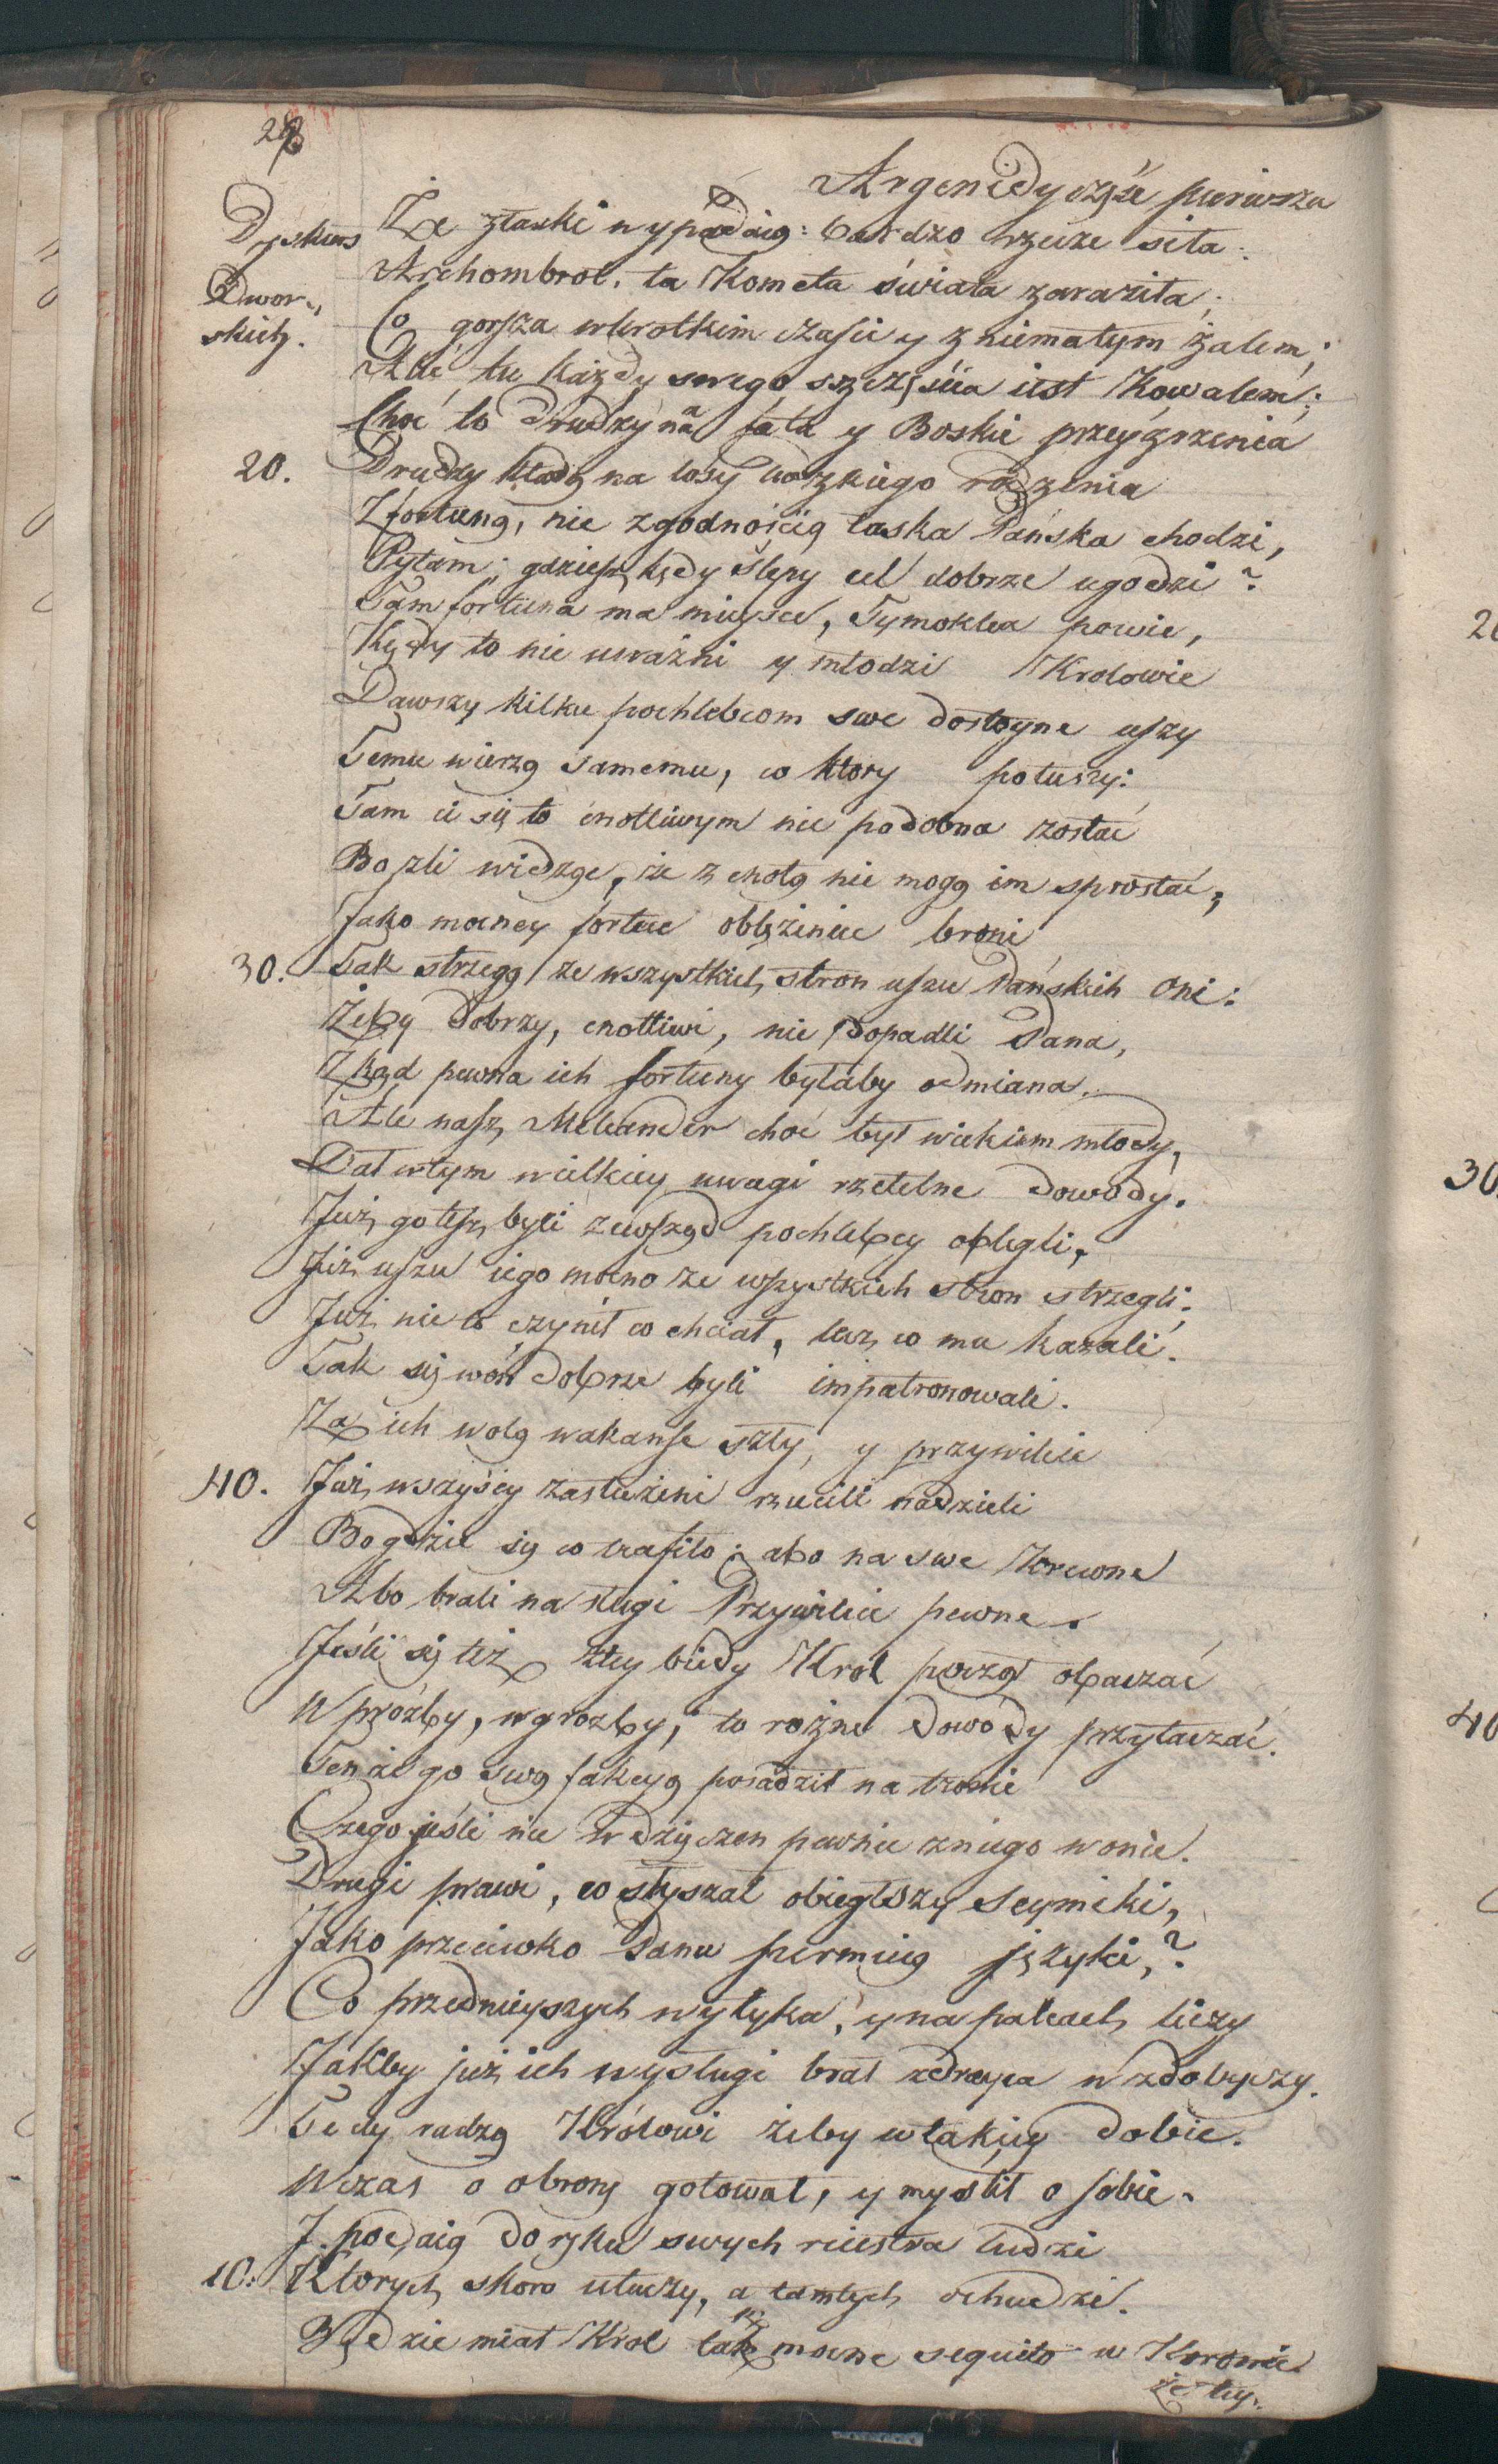 Argenidy część pierwsza
Dyskurs
Dwor-
skich.
Że złaski wypadaią: bardzo rzecze siła.
Archombrot. ta Kometa świata zaraziła;
Co gorsza wkrotkim czasie y z niemałym żalem;
Ale tu każdy swego szczęścia iest Kowalem;
Choć to drudzy na fata y Boskie przeyźrzenia
20. Drudzy kładą na losy ludzkiego rodzenia
Zfortuną, nie zgodnością łaska Pańska chodzi,
Pytam; gdziesz kędy ślepy cel dobrze ugodzi?
Tam fortuna ma mieysce, Tymoklea powie,
Kędy to nie uważni y młodzi Krolowie
Dawszy kilku pochlebcom swe dostoyne uszy
Temu wierzą samemu, co ktory potuszy:
Tam ci się to cnotliwym nie podobna zostać
Bo zli widząc, że z cnotą nie mogą im sprostać,
Jako mocney fortece oblężeniec broni
30. Tak strzegą ze wszystkich stron uszu Pańskich oni:
Żeby dobrzy, cnotliwi, nie dopadli Pana,
Zkąd pewna ich fortuny byłaby odmiana.
Ale nasz Meleander choć był wiekiem młody,
Dał wtym wielkiey uwagi rzetelne dowody.
Już go tesz byli zewsząd pochlebcy oblegli,
Już uszu iego mocno ze wszystkich stron strzegli;
Już nie to czynił co chciał, lecz co mu kazali.
Tak się woń dobrze byli impatronowali.
Za ich wolą wakanse szły, y przywileie
40. Już wszyscy zasłużeni rzucili nadzieli
Bo gdzie się co trafiło; abo na swe Krewne
Abo brali na sługi Przywileie pewne.
Jeśli się też złey biedy Krol począł obaczać
W prozby, w grozby, to rożne dowody przytaczać.
Ten że go swą fakcyą posadził na tronie
Czego jeśli nie wdzięczen pewnie zniego wonie.
Drugi prawi, co słyszał obiegłszy Seymiki,
Jako przeciwko Panu szermuią języki,?
Co przednieyszych wytyka, y na palcach liczy
Jakby już ich wysługi brał zdrayca w zdobyczy.
Tedy radzą Królowi żeby wtakiey dobie.
Wczas o obrony gotował, y myslił o sobie.
J podaią do ręku swych rieistra ludzi
10: Ktorych skoro utuczy, a tamtych ochudzi.
Będzie miał Krol tak mocne seguito w Koronie
że tey.
20
30.
40